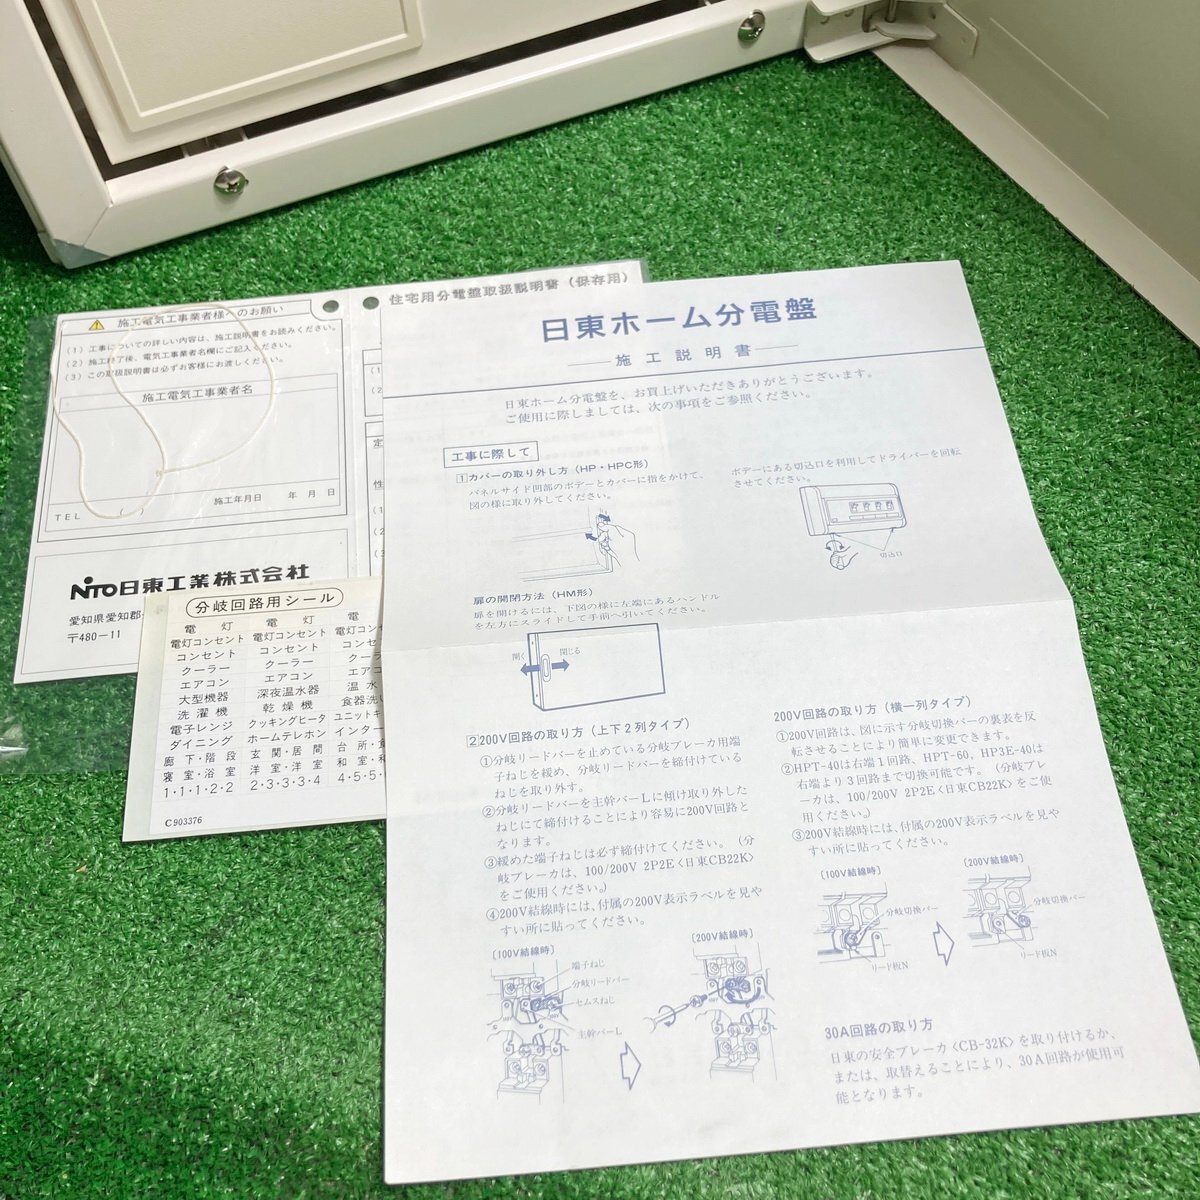 施工電気工事業者様へのお願い
(1) 工事についての詳しい内容は、施工説明書をお読みください。
(2) 施工終了後、電気工事業者名欄にご記入ください。
(3) この取扱説明書は必ずお客様にお渡しください。
施工電気工事業者名
施工年月日 年 月 日
TEL ( )
NITO日東工業株式会社
愛知県愛知郡
〒480-11
住宅用分電盤取扱説明書 (保存用)
(1
(2
定
性
(1
(2
(3
分岐回路用シール
電灯 電灯 電
電灯コンセント 電灯コンセント 電灯コン
コンセント コンセント コンセ
クーラー クーラー クーラ
エアコン エアコン エアコ
大型機器 深夜温水器 温水
洗濯機 乾燥機 食器洗い
電子レンジ クッキングヒータ ユニットキ
ダイニング ホームテレホン インター
廊下・階段 玄関・居間 台所・食
寝室・浴室 洋室・洋室 和室・和
1・1・1・2・2 2・3・3・3・4 4・5・5・
C903376
日東ホーム分電盤
施工説明書
日東ホーム分電盤を、お買上げいただきありがとうございます。
ご使用に際しましては、次の事項をご参照ください。
工事に際して
1 カバーの取り外し方 (HP・HPC形)
パネルサイド凹部のボデーとカバーに指をかけて、
図の様に取り外してください。
ボデーにある切込口を利用してドライバーを回転
させてください。
切込口
扉の開閉方法 (HM形)
扉を開けるには、下図の様に左端にあるハンドル
を左方にスライドして手前へ引いてください。
開く 閉じる
2 200V回路の取り方 (上下2列タイプ)
①分岐リードバーを止めている分岐ブレーカ用端
子ねじを緩め、分岐リードバーを締付けている
ねじを取り外す。
②分岐リードバーを主幹バーLに傾け取り外した
ねじにて締付けることにより容易に200V回路と
なります。
③緩めた端子ねじは必ず締付けてください。(分
岐ブレーカは、100/200V 2P2E〈日東CB22K〉
をご使用ください。)
④200V結線時には、付属の200V表示ラベルを見や
すい所に貼ってください。
〔100V結線時〕
端子ねじ
分岐リードバー
セムスねじ
主幹バーL
〔200V結線時〕
200V回路の取り方 (横一列タイプ)
①200V回路は、図に示す分岐切換バーの裏表を反
転させることにより簡単に変更できます。
②HPT-40は右端1回路、HPT-60、HP3E-40は
右端より3回路まで切換可能です。(分岐ブレ
ーカは、100/200V 2P2E〈日東CB22K〉をご使
用ください。)
③200V結線時には、付属の200V表示ラベルを見や
すい所に貼ってください。
〔100V結線時〕
分岐切換バー
リード板N
〔200V結線時〕
分岐切換バー
リード板N
30A回路の取り方
日東の安全ブレーカ〈CB-32K〉を取り付けるか、
または、取替えることにより、30A回路が使用可
能となります。